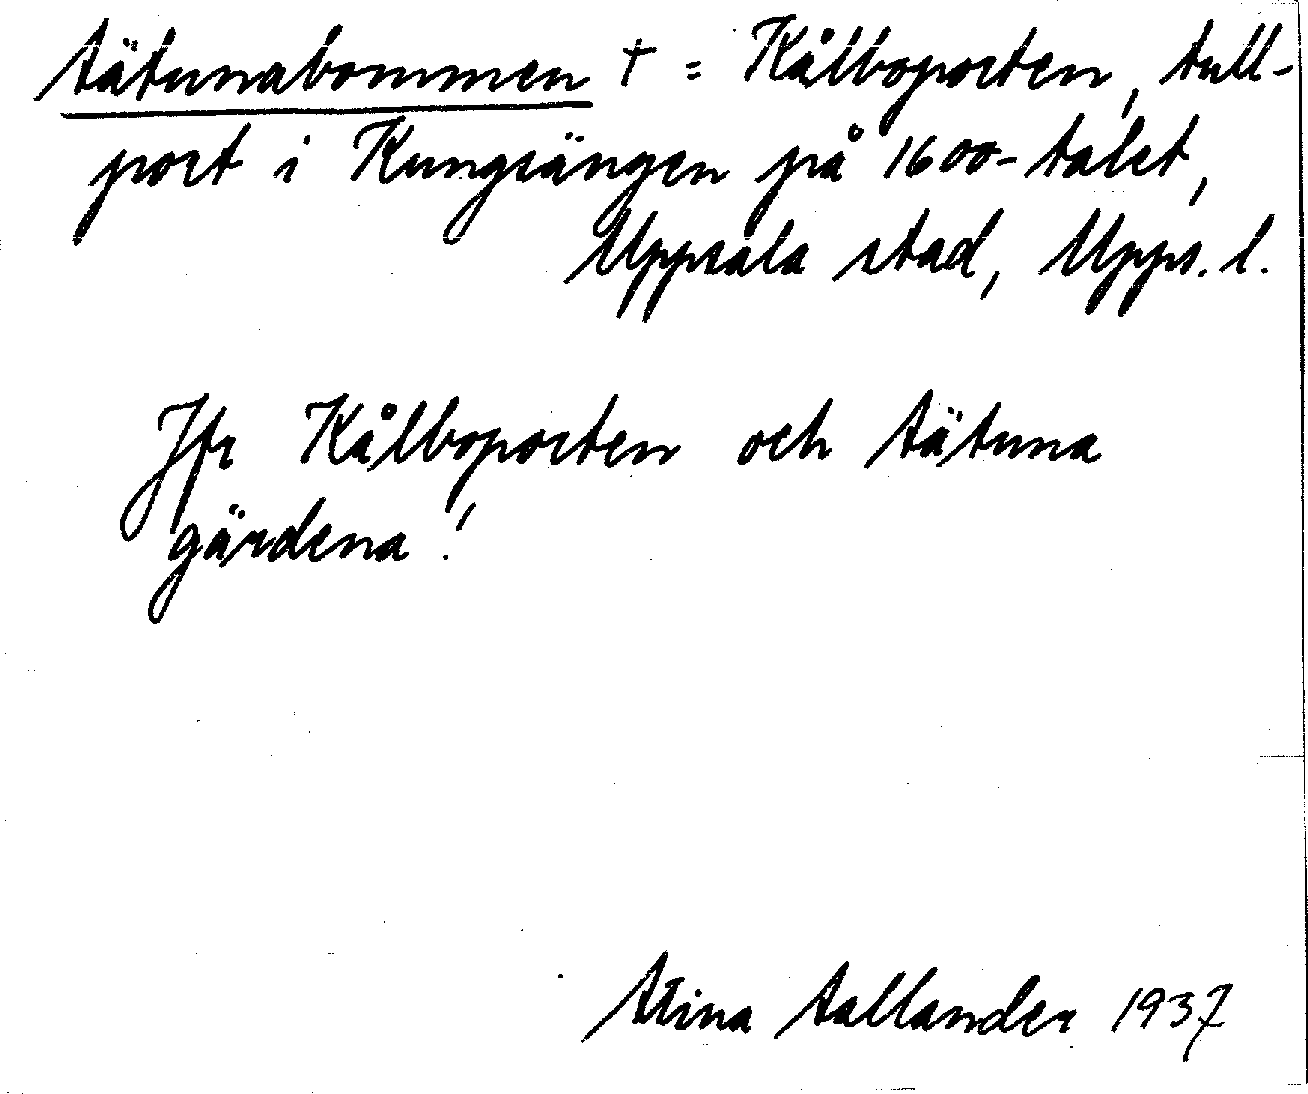 Sätunabommen † = Kålboporten, tull-
port i Kungsängen på 1600-talet,
Uppsala stad, Upps. l.
Jfr Kålboporten och Sätuna
gärdena!
Stina Sallander 1937